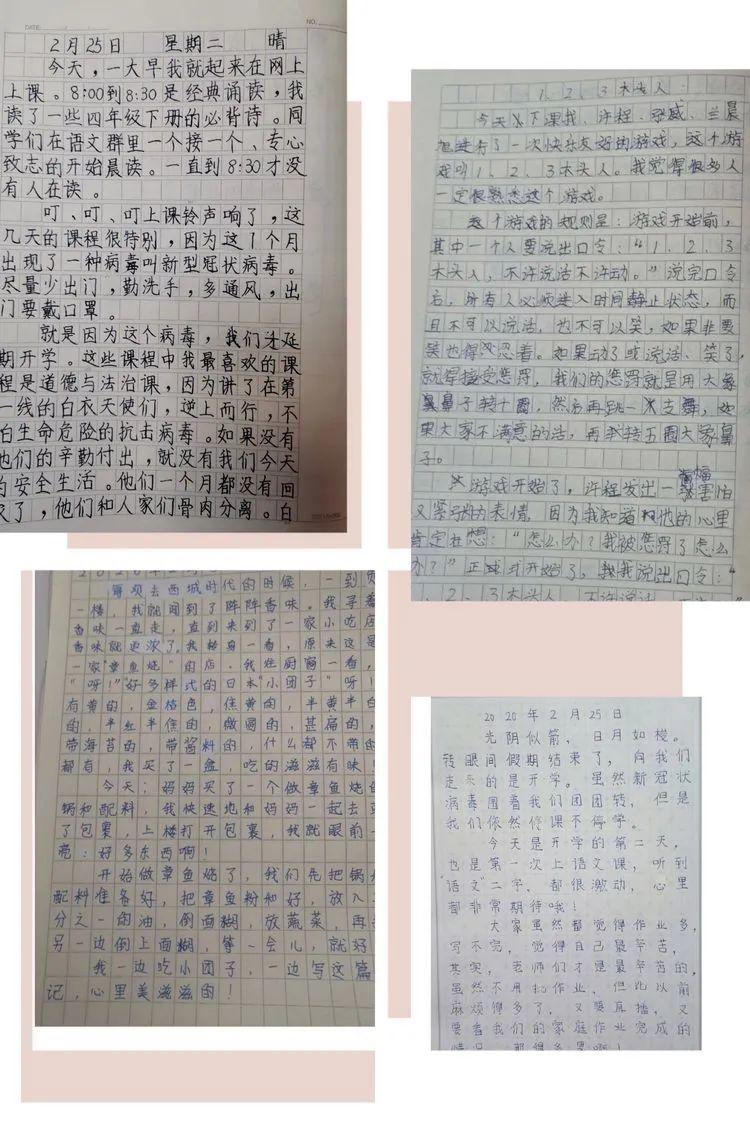 DATE:
NO.
2月25日 星期二 晴
今天，一大早我就起来在网上
上课。8:00到8:30是经典诵读，我
读了一些四年级下册的必背诗。同
学们在语文群里一个接一个、专心
致志的开始晨读。一直到8:30才没
有人在读。
叮、叮、叮上课铃声响了，这
几天的课程很特别，因为这1个月
出现了一种病毒叫新型冠状病毒。
尽量少出门，勤洗手，多通风，出
门要戴口罩。
就是因为这个病毒，我们才延
期开学。这些课程中我最喜欢的课
程是道德与法治课，因为讲了在第
一线的白衣天使们，逆上而行，不
白生命危险的抗击病毒。如果没有
他们的辛勤付出，就没有我们今天
的安全生活。他们一个月都没有回
家了，他们和人家们骨肉分离。白
1、2、3木头人
今天下课我、许程、 兰晨
进行了一次快乐友好的游戏，这个游
戏叫1、2、3木头人。我觉得很多人
一定很熟悉这个游戏。
这个游戏的规则是：游戏开始前，
其中一个人要说出口令：“1、2、3
木头人，不许说话不许动。”说完口令
后，所有人必须进入时间静止状态，而
且不可以说话，也不可以笑，如果非要
笑也得忍着。如果动了或说话、笑了，
就得接受惩罚，我们的惩罚就是用大象
鼻子转十圈，然后再跳一支舞，如
果大家不满意的话，再转五圈大象鼻
子。
游戏开始了，许程发出一幅害怕
又紧张的表情，因为我知道他的心里
肯定在想：“怎么办？我被惩罚了怎么
办？”正式开始了，我说出口令：“
1、2、3木头人，不许说话
每项去西城时代的时候，一到负
一楼，我就闻到了阵阵香味。我寻着
香味一直走，直到来到了一家小吃店
香味就更浓了。我转身一看，原来这是
一家“章鱼烧”的店。我往厨窗一看，
“呀！”好多样式的日本“小团子”呀！
有黄的，金桔色，焦黄的，半黄半白
的，半红半焦的，做圆的，甚扁的，
带海苔的，带酱料的，什么都不带的
都有，我买了一盒，吃的滋滋有味！
今天，妈妈买了一个做章鱼烧的
锅和配料，我快速地和妈妈一起去
了包裹，上楼打开包裹，我就眼前一
亮：好多东西啊！
开始做章鱼烧了，我们先把锅和
配料准备好，把章鱼粉和好，放入
分之一的油，倒面糊，放蔬菜，再
另一边倒上面糊，等一会儿，就好
我一边吃小团子，一边写这篇
记，心里美滋滋的！
2020年2月25日
光阴似箭，日月如梭。
转眼间假期结束了，向我们
走来的是开学。虽然新冠状
病毒围着我们团团转，但是
我们依然停课不停学。
今天是开学的第二天，
也是第一次上语文课，听到
“语文”二字，都很激动，心里
都非常期待哦！
大家虽然都觉得作业多，
写不完，觉得自己最辛苦，
其实，老师们才是最辛苦的，
虽然不用批作业，但比以前
麻烦得多了，又要直播，又
要看我们的家庭作业完成的
情况，那得多累啊！